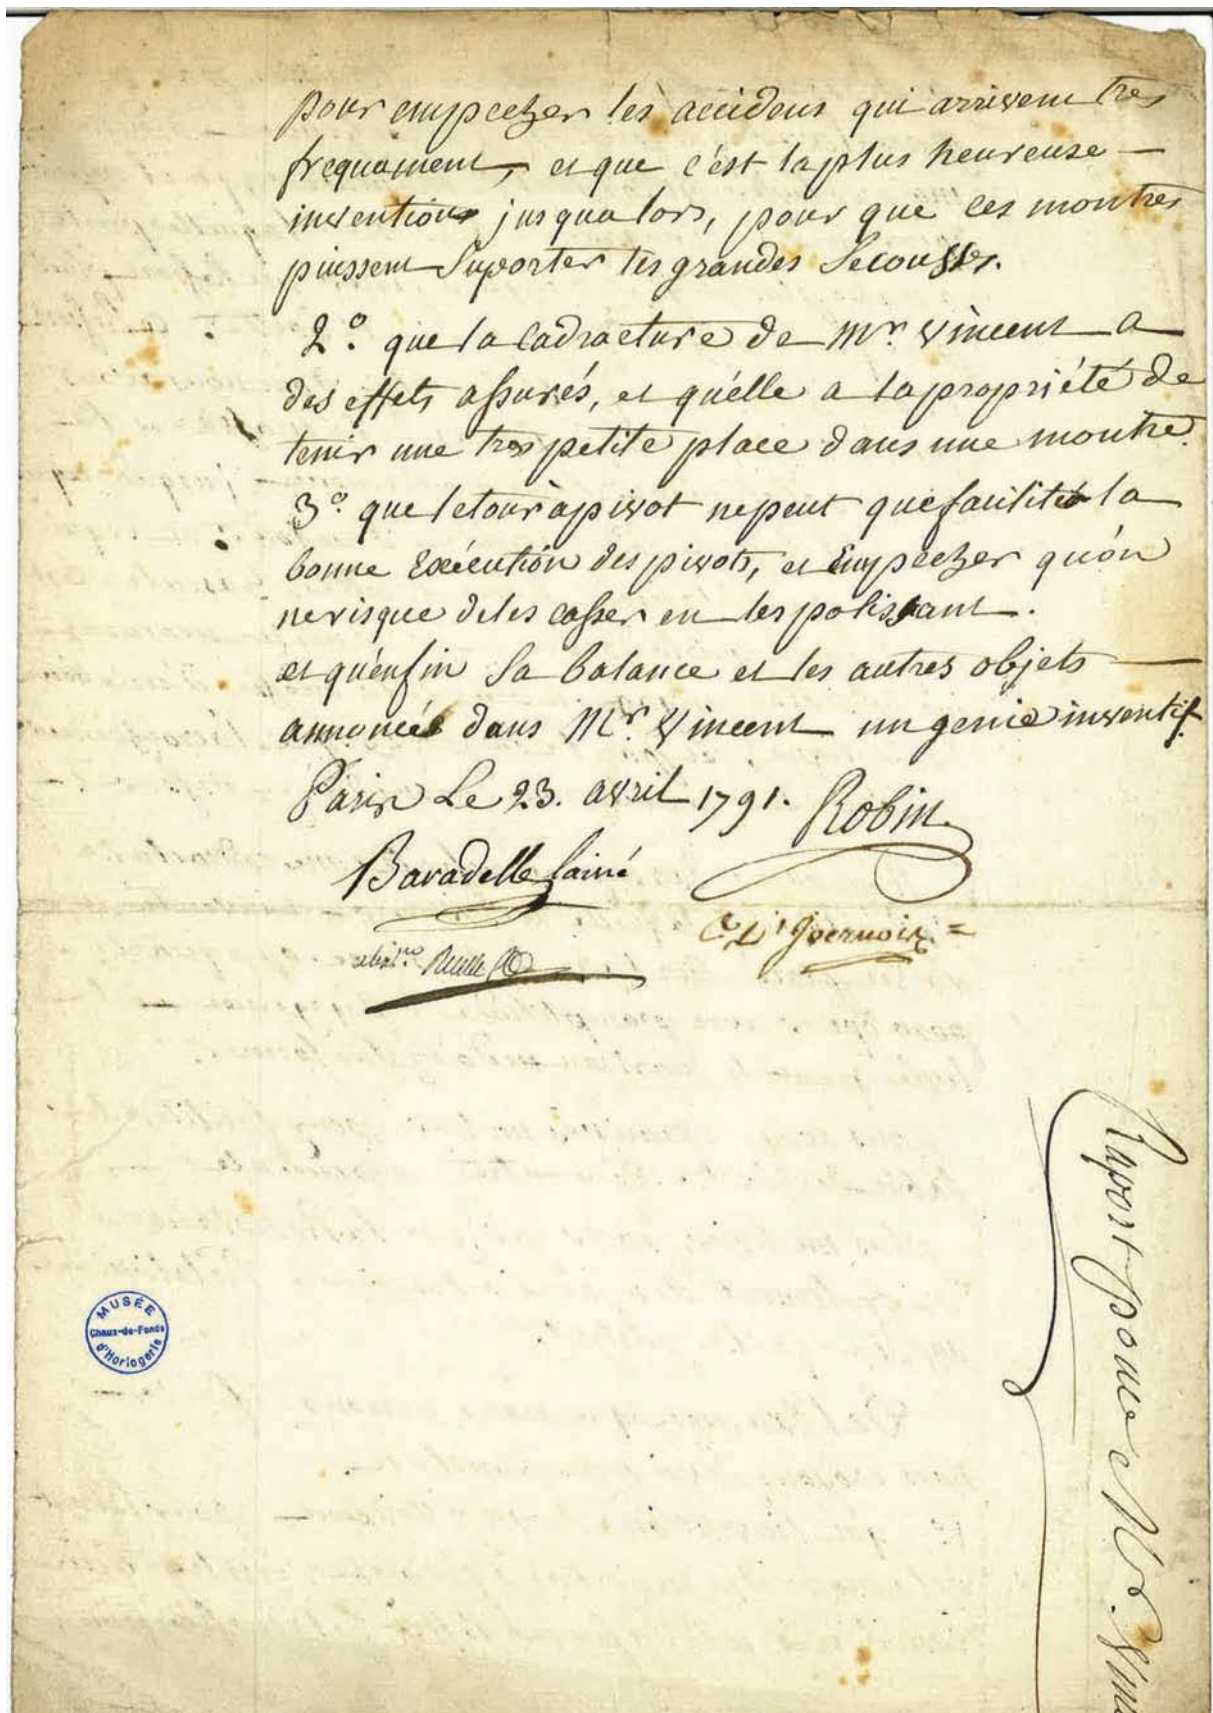 pour empecher les accidens qui arrivent tres
frequament, et que c'est la plus heureuse —
invention jusqualors, pour que ces montres
puissent Suporter les grandes Secousses.
2.° que la Cadracture de Mr. Vincent a
des effets assurés, et qu'elle a la propriété de
tenir une tres petite place dans une montre.
3.° que le tour à pivot ne peut que faciliter la
bonne Exécution des pivots, et Empecher qu'on
ne risque de les casser en les polissant.
et qu'enfin Sa balance et les autres objets —
annonce dans Mr. Vincent un genie inventif.
Paris Le 23. avril 1791. Robin
Baradelle lainé
MUSÉE
Chaux-de-Fonds
d'Horlogerie
Raport pour Mr. Vinc